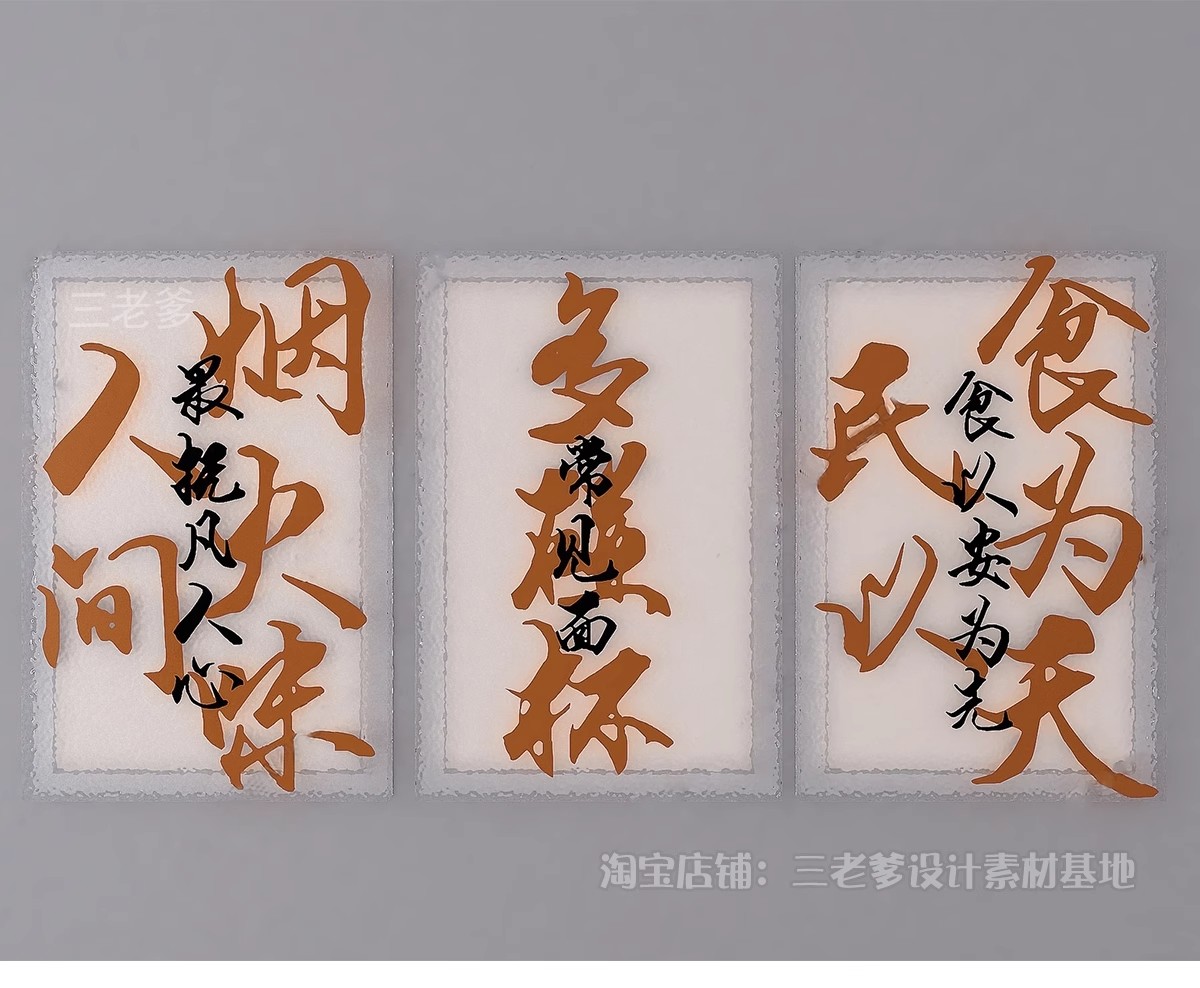 三老爹
人间
烟火味
最抚凡人心
多碰杯
常见面
民以
食为天
食以安为先
淘宝店铺：三老爹设计素材基地